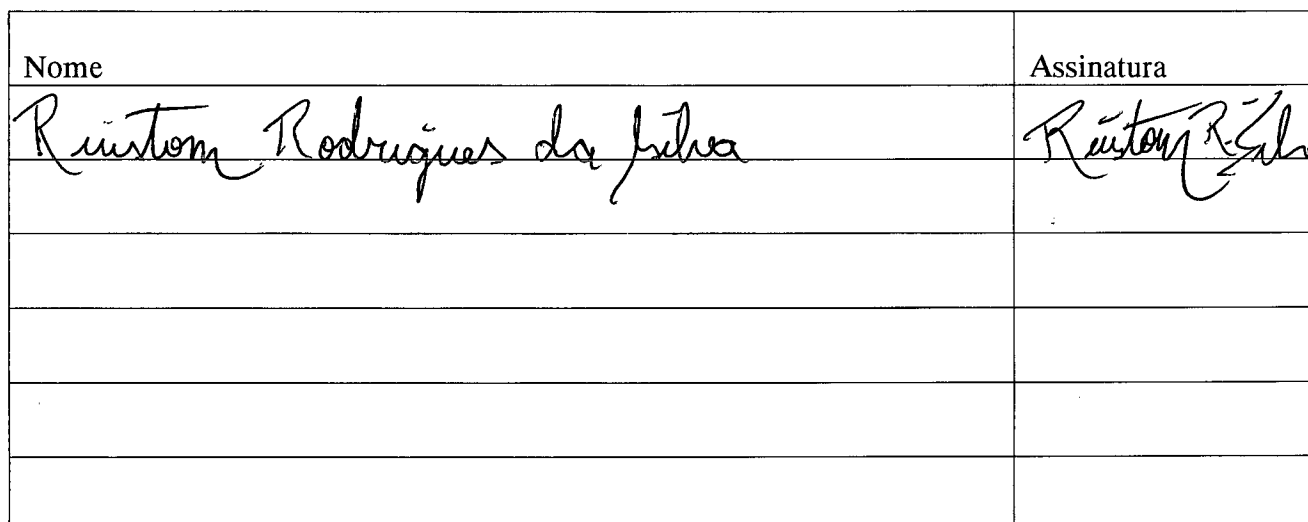 Nome Assinatura
Rüstom Rodrigues da Silva Rüstom R. Silv